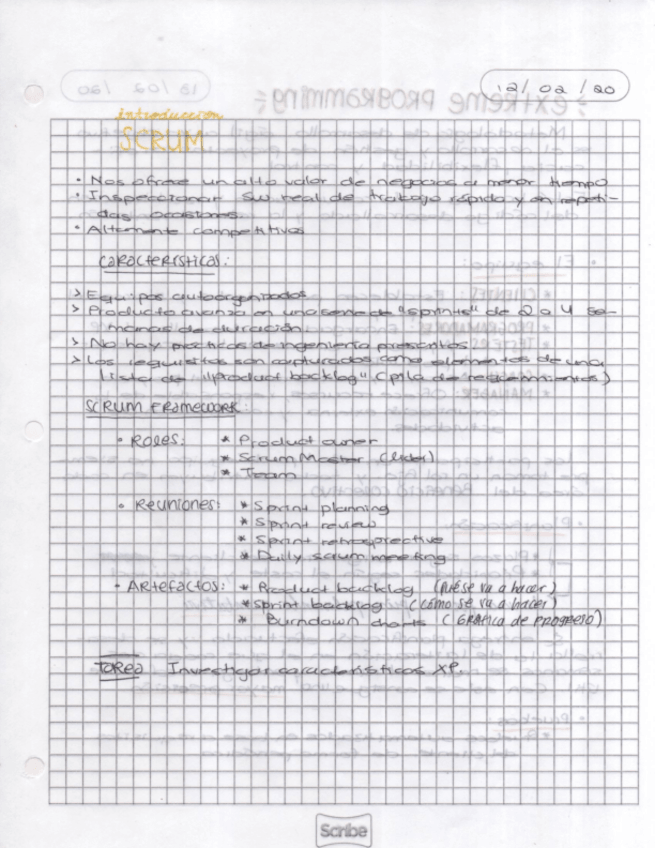 12/ 02 / 20
introducción
SCRUM
• Nos ofrece un alto valor de negocios a menor tiempo
• Inspeccionar sw real de trabajo rápido y en repeti-
das ocasiones
• Altamente competitivos
Características:
> Equipos autoorganizados
> Producto avanza en una serie de "sprints" de 2 a 4 se-
manas de duración
> No hay prácticas de ingeniería prescritas
> Los requisitos son capturados como elementos de una
lista de "product backlog" (pila de requerimientos)
SCRUM FRAMEWORK:
• ROLES: * Product owner
* Scrum Master (lider)
* Team
• Reuniones: * Sprint planning
* Sprint review
* Sprint retrosprective
* Daily scrum meeting
• Artefactos: * Product backlog (Qué se va a hacer)
* sprint backlog (cómo se va a hacer)
* Burndown charts (GRÁFICA de PROGRESO)
TAREA Investigar características XP.
Scribe